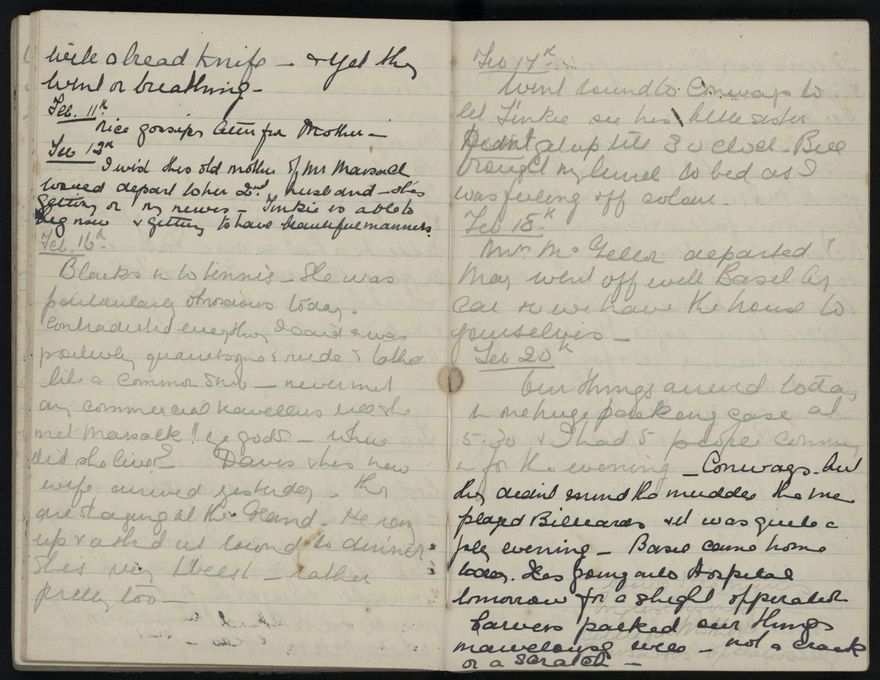 with a bread knife - & yet they
went on breathing -
Feb. 11th
Nice gossipy letter from Mother -
Feb 13th
I wish this old mother of Mr Marsack
would depart to her 2nd husband - she's
getting on my nerves - Tinkie is able to
beg now & getting to have beautiful manners.
Feb. 16th
Blacks in to tennis - She was
particularly obnoxious today.
Contradicted everything I said & was
positively quarrelsome & rude & talked
like a common - never met
any commercial travellers till she
met Marsack!! Ye gods - where
did she live? Davis & his new
wife arrived yesterday - they
are staying at the Grand. He rang
up & asked us round to dinner
She's very - rather
pretty too -
Feb 17th
Went round to Conways to
let Tinkie see his little sister
Didn't get up till 3 o'clock. Bill
brought my lunch to bed as I
was feeling off colour.
Feb 18th
Mrs departed
May went off with Basil by
car & we have the house to
yourselves -
Feb 20th
Our things arrived today
in one huge packing case at
5.30 & I had 5 people coming
in for the evening - Conways - but
they didn't mind the muddle the men
played Billiards & it was quite a
jolly evening - Basil came home
today. He's going into Hospital
tomorrow for a slight operation
packed our things
marvellously well - not a crack
or a scratch -